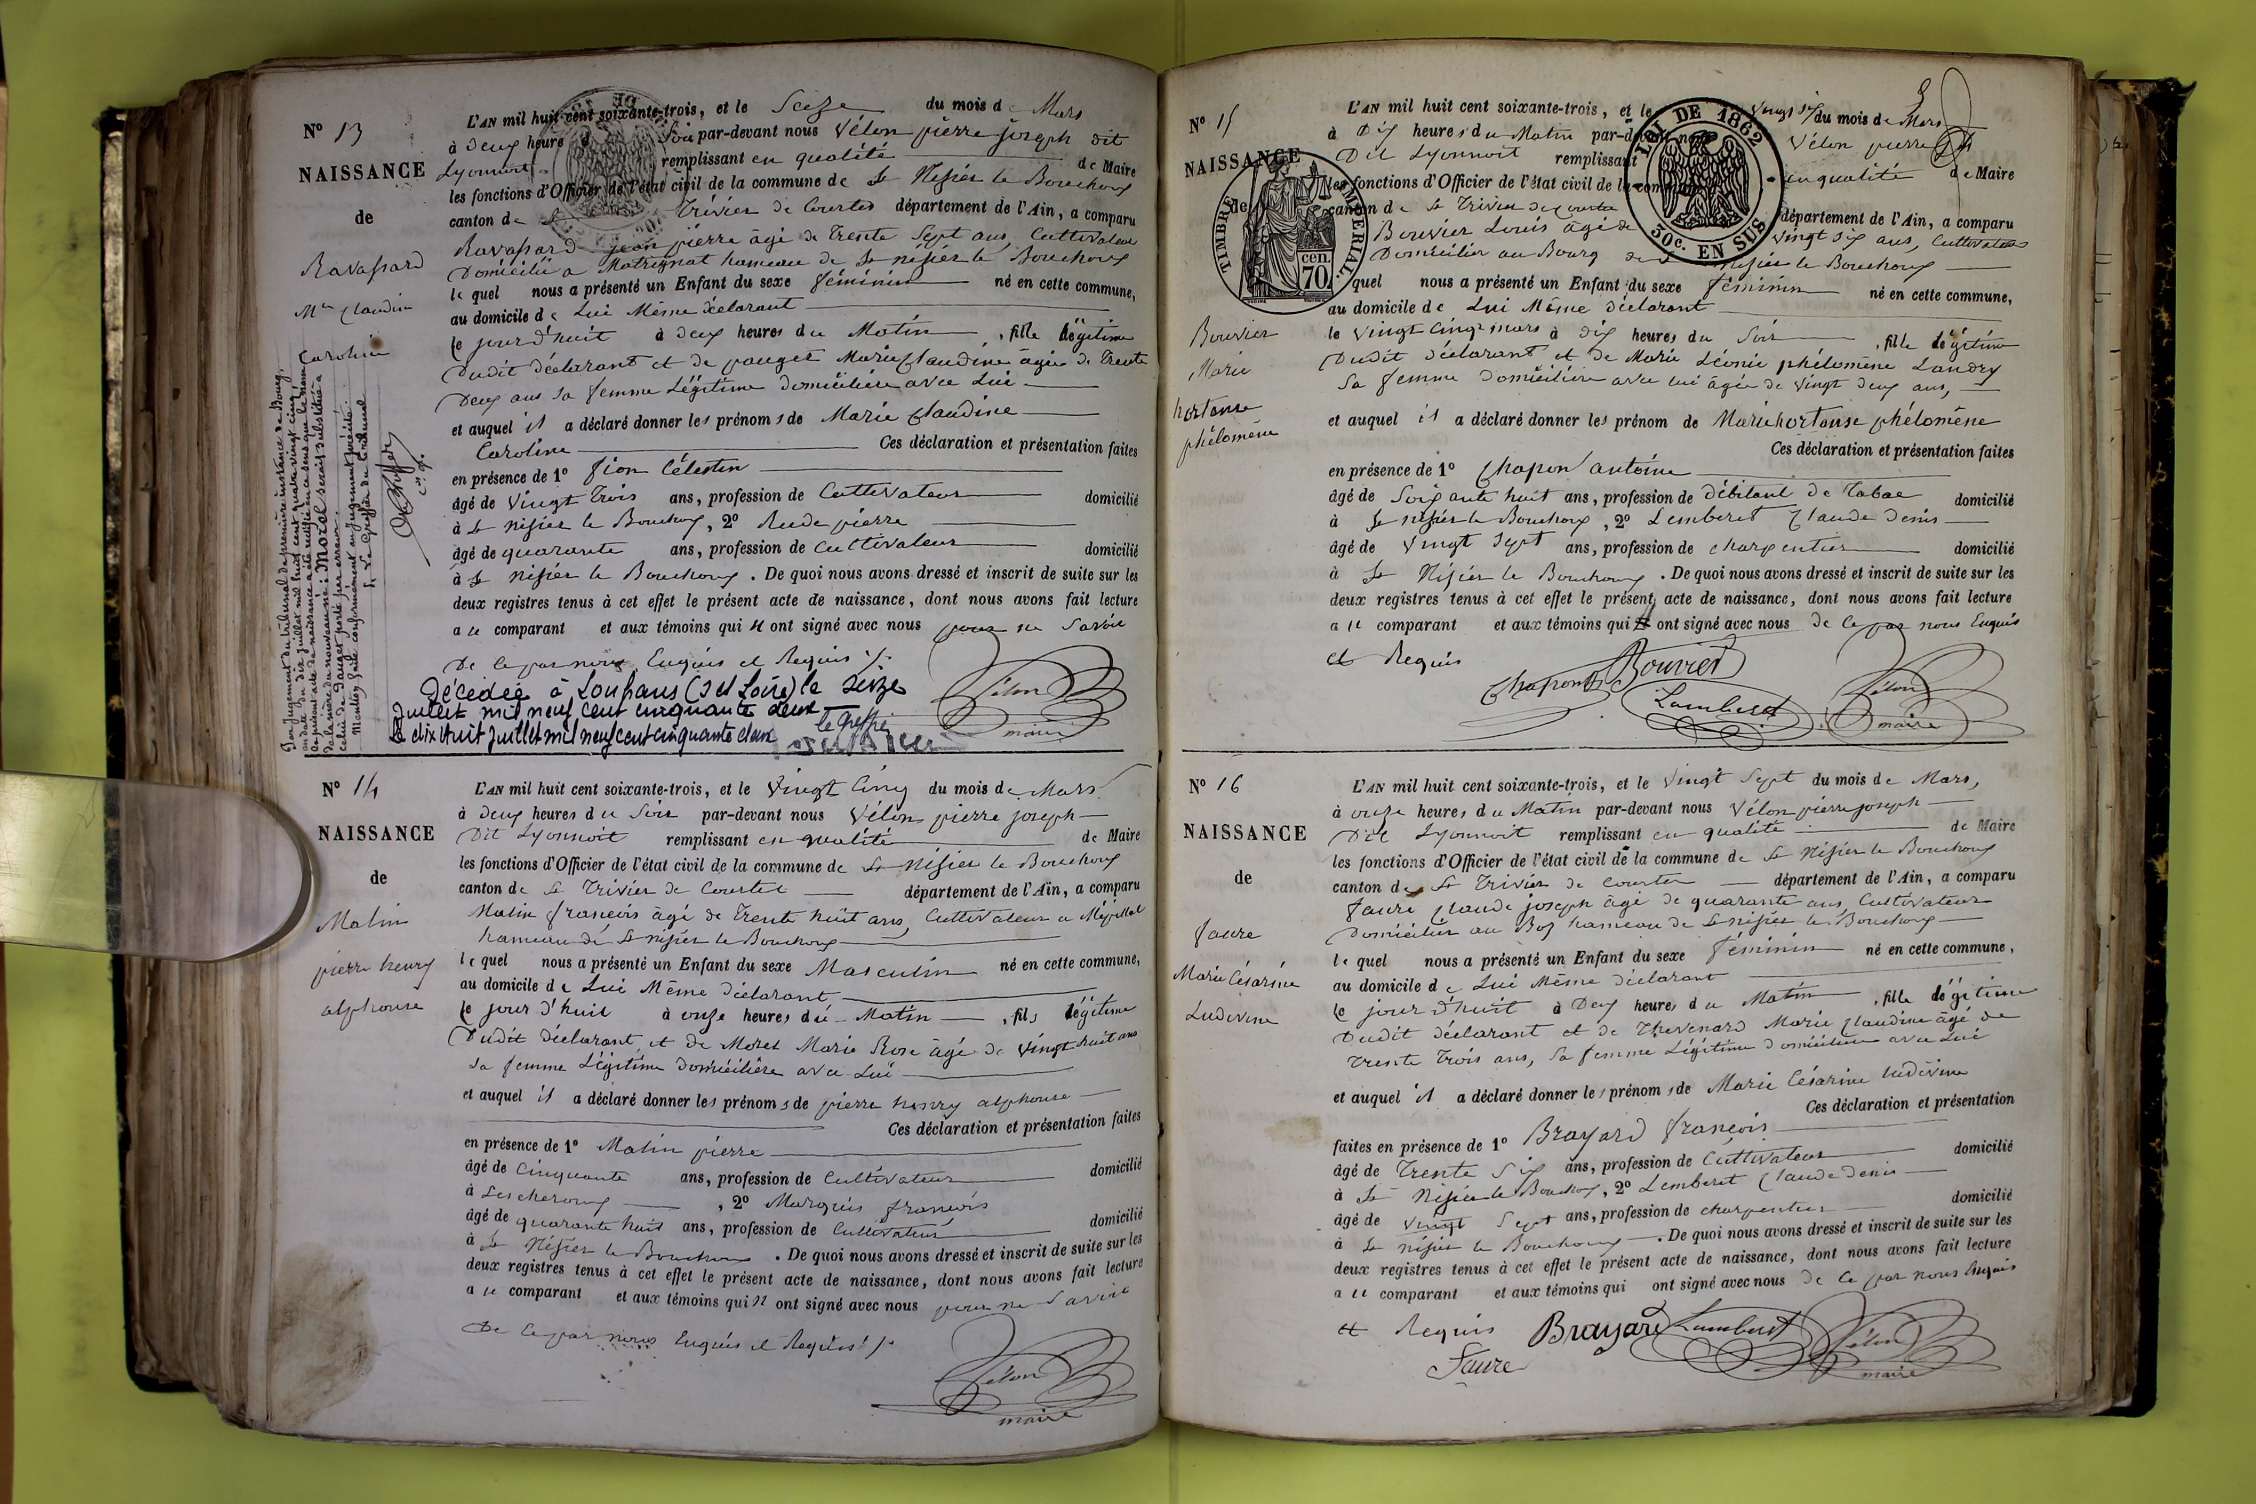 N° 13
NAISSANCE
de
Ravassard
Mie Claudine
Caroline
Par jugement du tribunal de première instance de Bourg,
en date du dix juillet mil huit cent quatre vingt cinq
le présent acte de naissance a été rectifié en ce sens que le nom
de la mère du nouveau né : Morel serait substitué à
celui de Pauget porté par erreur.
Mention faite conformément au jugement précité.
Le Greffier du tribunal
L'AN mil huit cent soixante-trois, et le Seize du mois de Mars
à deux heures du Soir par-devant nous Vélon pierre joseph dit
Lyonnoit remplissant en qualité de Maire
les fonctions d'Officier de l'état civil de la commune de St Nisier le Bouchoux
canton de St Trivier de Courtes département de l'Ain, a comparu
Ravassard jean pierre âgé de Trente Sept ans, Cultivateur
Domicilié a Matrignat hameau de St nisier le Bouchoux
le quel nous a présenté un Enfant du sexe féminin né en cette commune,
au domicile de Lui Même déclarant
le jour d'huit à deux heures du Matin, fille légitime
Dudit déclarant et de pauget Marie Claudine âgée de Trente
Deux ans sa femme Légitime domiciliée avec Lui
et auquel il a déclaré donner les prénoms de Marie Claudine
Caroline Ces déclaration et présentation faites
en présence de 1° fion Célestin
âgé de Vingt Trois ans, profession de Cultivateur domicilié
à St nisier le Bouchoux, 2° Rude pierre
âgé de quarante ans, profession de Cultivateur domicilié
à St nisier le Bouchoux. De quoi nous avons dressé et inscrit de suite sur les
deux registres tenus à cet effet le présent acte de naissance, dont nous avons fait lecture
a ce comparant et aux témoins qui n ont signé avec nous pour ne Savoir
De ce par nous Enquis et Requis ./.
Décédée à Louhans (S et Loire) le seize
juillet mil neuf cent cinquante deux
Le dix huit juillet mil neuf cent cinquante deux
le Greffier
Vélon
maire
N° 14
NAISSANCE
de
Matin
pierre henry
alphonse
L'AN mil huit cent soixante-trois, et le Vingt Cinq du mois de Mars
à deux heures du Soir par-devant nous Vélon pierre joseph
Dit Lyonnoit remplissant en qualité de Maire
les fonctions d'Officier de l'état civil de la commune de St Nisier le Bouchoux
canton de St Trivier de Courtes département de l'Ain, a comparu
Matin françois âgé de Trente huit ans, Cultivateur a Mépillat
hameau de St nisier le Bouchoux
le quel nous a présenté un Enfant du sexe Masculin né en cette commune,
au domicile de Lui Même déclarant
le jour d'huit à onze heures du Matin, fils légitime
Dudit déclarant et de Morel Marie Rose âgé de Vingt huit ans
sa femme Légitime domicilière avec Lui
et auquel il a déclaré donner les prénoms de pierre henry alphonse
Ces déclaration et présentation faites
en présence de 1° Matin pierre
âgé de Cinquante ans, profession de Cultivateur domicilié
à Lescheroux, 2° Marquis françois
âgé de quarante huit ans, profession de Cultivateur domicilié
à St Nisier le Bouchoux. De quoi nous avons dressé et inscrit de suite sur les
deux registres tenus à cet effet le présent acte de naissance, dont nous avons fait lecture
a ce comparant et aux témoins qui n ont signé avec nous pour ne Savoir
De ce par nous Enquis et Requis ./.
Vélon
maire
N° 15
NAISSANCE
de
Bouvier
Marie
hortense
phélomène
TIMBRE IMPERIAL
70 cen.
LOI DE 1862
30c. EN SUS
L'AN mil huit cent soixante-trois, et le Vingt Six du mois de Mars
à Dix heures du Matin par-devant nous Vélon pierre
Dit Lyonnoit remplissant en qualité de Maire
les fonctions d'Officier de l'état civil de la commune
canton de St Trivier de Courtes département de l'Ain, a comparu
Bouvier Louis âgé de Vingt Six ans, Cultivateur
Domicilier au Bourg de St Nisier le Bouchoux
quel nous a présenté un Enfant du sexe féminin né en cette commune,
au domicile de Lui Même déclarant
le Vingt Cinq mars à dix heures du Soir, fille légitime
Dudit déclarant et de Marie Léonie phélomène Landry
Sa femme Domicilière avec lui âgée de Vingt Deux ans,
et auquel il a déclaré donner les prénom de Marie hortense phélomène
Ces déclaration et présentation faites
en présence de 1° Chapon antoine
âgé de Soixante huit ans, profession de débitant de Tabac domicilié
à St nisier le Bouchoux, 2° Lemberet Claude denis
âgé de Vingt Sept ans, profession de charpentier domicilié
à St Nisier le Bouchoux. De quoi nous avons dressé et inscrit de suite sur les
deux registres tenus à cet effet le présent acte de naissance, dont nous avons fait lecture
a ce comparant et aux témoins qui ont signé avec nous de ce par nous Enquis
et Requis
Chapon Bouvier
Lamberet
Vélon
maire
N° 16
NAISSANCE
de
faure
Marie Césarine
Ludivine
L'AN mil huit cent soixante-trois, et le Vingt Sept du mois de Mars,
à onze heures du Matin par-devant nous Vélon pierre joseph
Dit Lyonnoit remplissant en qualité de Maire
les fonctions d'Officier de l'état civil de la commune de St Nisier le Bouchoux
canton de St Trivier de Courtes département de l'Ain, a comparu
faure Claude joseph âgé de quarante ans, Cultivateur
Domicilier au Boz hameau de St nisier le Bouchoux
le quel nous a présenté un Enfant du sexe féminin né en cette commune,
au domicile de Lui Même déclarant
le jour d'huit à Deux heures du Matin, fille légitime
Dudit déclarant et de Thevenard Marie Claudine âgé de
Trente Trois ans, sa femme Légitime domicilière avec Lui
et auquel il a déclaré donner les prénoms de Marie Césarine Ludivine
Ces déclaration et présentation
faites en présence de 1° Brayard françois
âgé de Trente Six ans, profession de Cultivateur domicilié
à St Nisier le Bouchoux, 2° Lemberet Claude denis
âgé de Vingt Sept ans, profession de charpentier domicilié
à St nisier le Bouchoux. De quoi nous avons dressé et inscrit de suite sur les
deux registres tenus à cet effet le présent acte de naissance, dont nous avons fait lecture
a ce comparant et aux témoins qui ont signé avec nous de ce par nous Enquis
et Requis
Brayard Lamberet
Faure
Vélon
maire